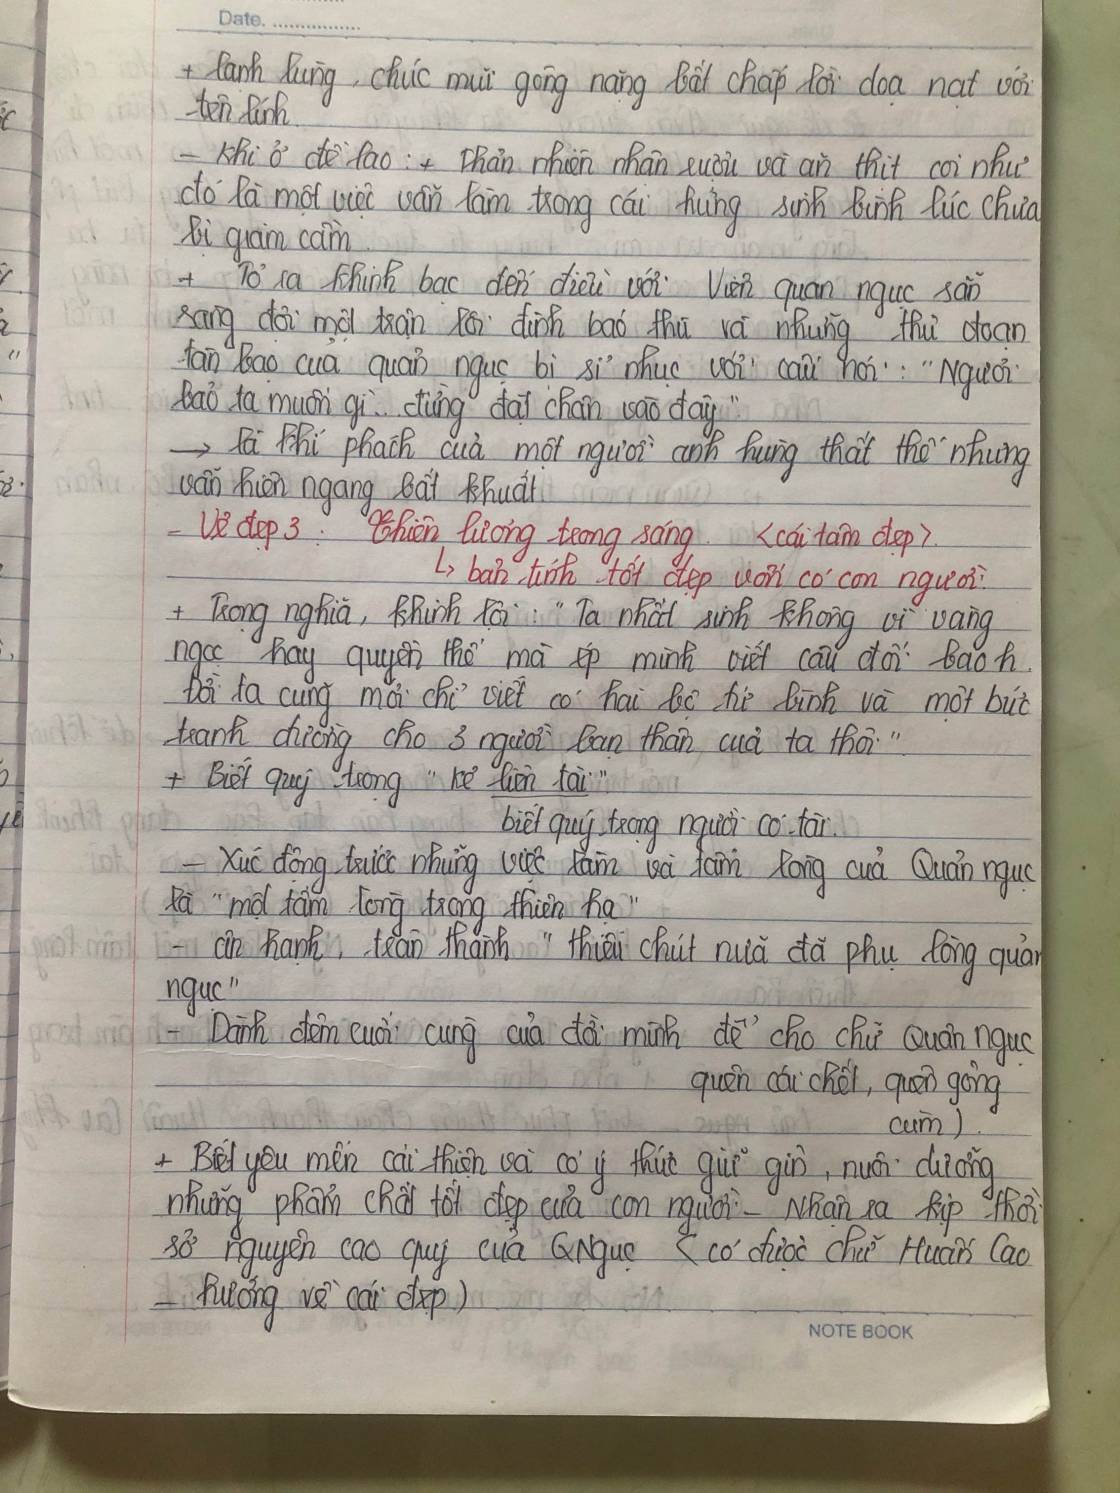 Date. ................
+ lạnh lùng, chúc mũi gông nặng bất chấp lời doạ nạt với
tên lính.
- Khi ở đề lao : + Thản nhiên nhận rượu và ăn thịt coi như
đó là một việc vẫn làm trong cái hứng sinh bình lúc chưa
bị giam cầm.
+ Tỏ ra khinh bạc đến điều với Viên quan ngục sẵn
sàng đợi một trận lôi đình báo thù và những thủ đoạn
tàn bạo của quản ngục bị sỉ nhục với câu nói : "Ngươi
bảo ta muốn gì .. đừng đặt chân vào đây"
→ là khí phách của một người anh hùng thất thế nhưng
vẫn hiên ngang bất khuất
- Vẻ đẹp 3 : Thiên lương trong sáng <cái tâm đẹp>.
↳ bản tính tốt đẹp vốn có con người.
+ Trọng nghĩa, khinh lợi : "Ta nhất sinh không vì vàng
ngọc hay quyền thế mà ép mình viết câu đối bao h.
Đời ta cũng mới chỉ viết có hai bộ tứ bình và một bức
tranh đường cho 3 người bạn thân của ta thôi."
+ Biết quý trọng "kẻ liên tài"
biết quý trọng người có tài.
- Xúc động trước những việc làm và tấm lòng của Quản ngục
là "một tấm lòng trong thiên hạ"
- ân hạnh, trân thành "thiếu chút nữa đã phụ lòng quản
ngục"
- Dành đêm cuối cùng của đời mình để cho chữ Quản ngục
quên cái chết, quên gông
cùm).
+ Biết yêu mến cái thiện và có ý thức giữ gìn, nuôi dưỡng
những phẩm chất tốt đẹp của con người - Nhận ra kịp thời
sở nguyện cao quý của QNgục < có được chữ Huấn Cao
- hướng về cái đẹp)
NOTE BOOK